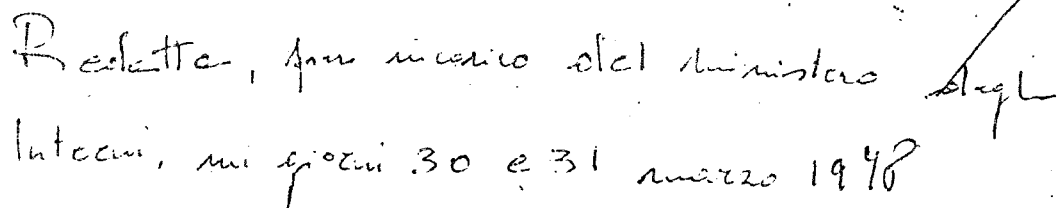 Redatta, per incarico del ministero degli
Interni, nei giorni 30 e 31 marzo 1978